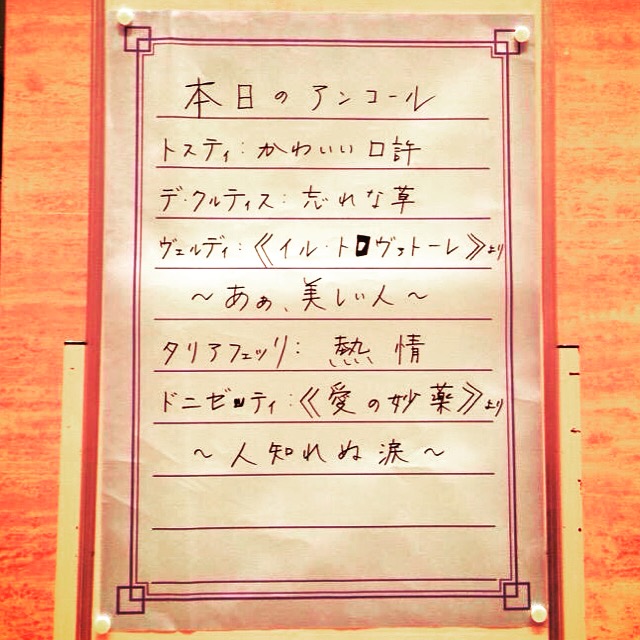 本日のアンコール
トスティ：かわいい口許
デ・クルティス：忘れな草
ヴェルディ：《イル・トロヴァトーレ》より
～あぁ、美しい人～
タリアフェッリ：熱情
ドニゼッティ：《愛の妙薬》より
～人知れぬ涙～